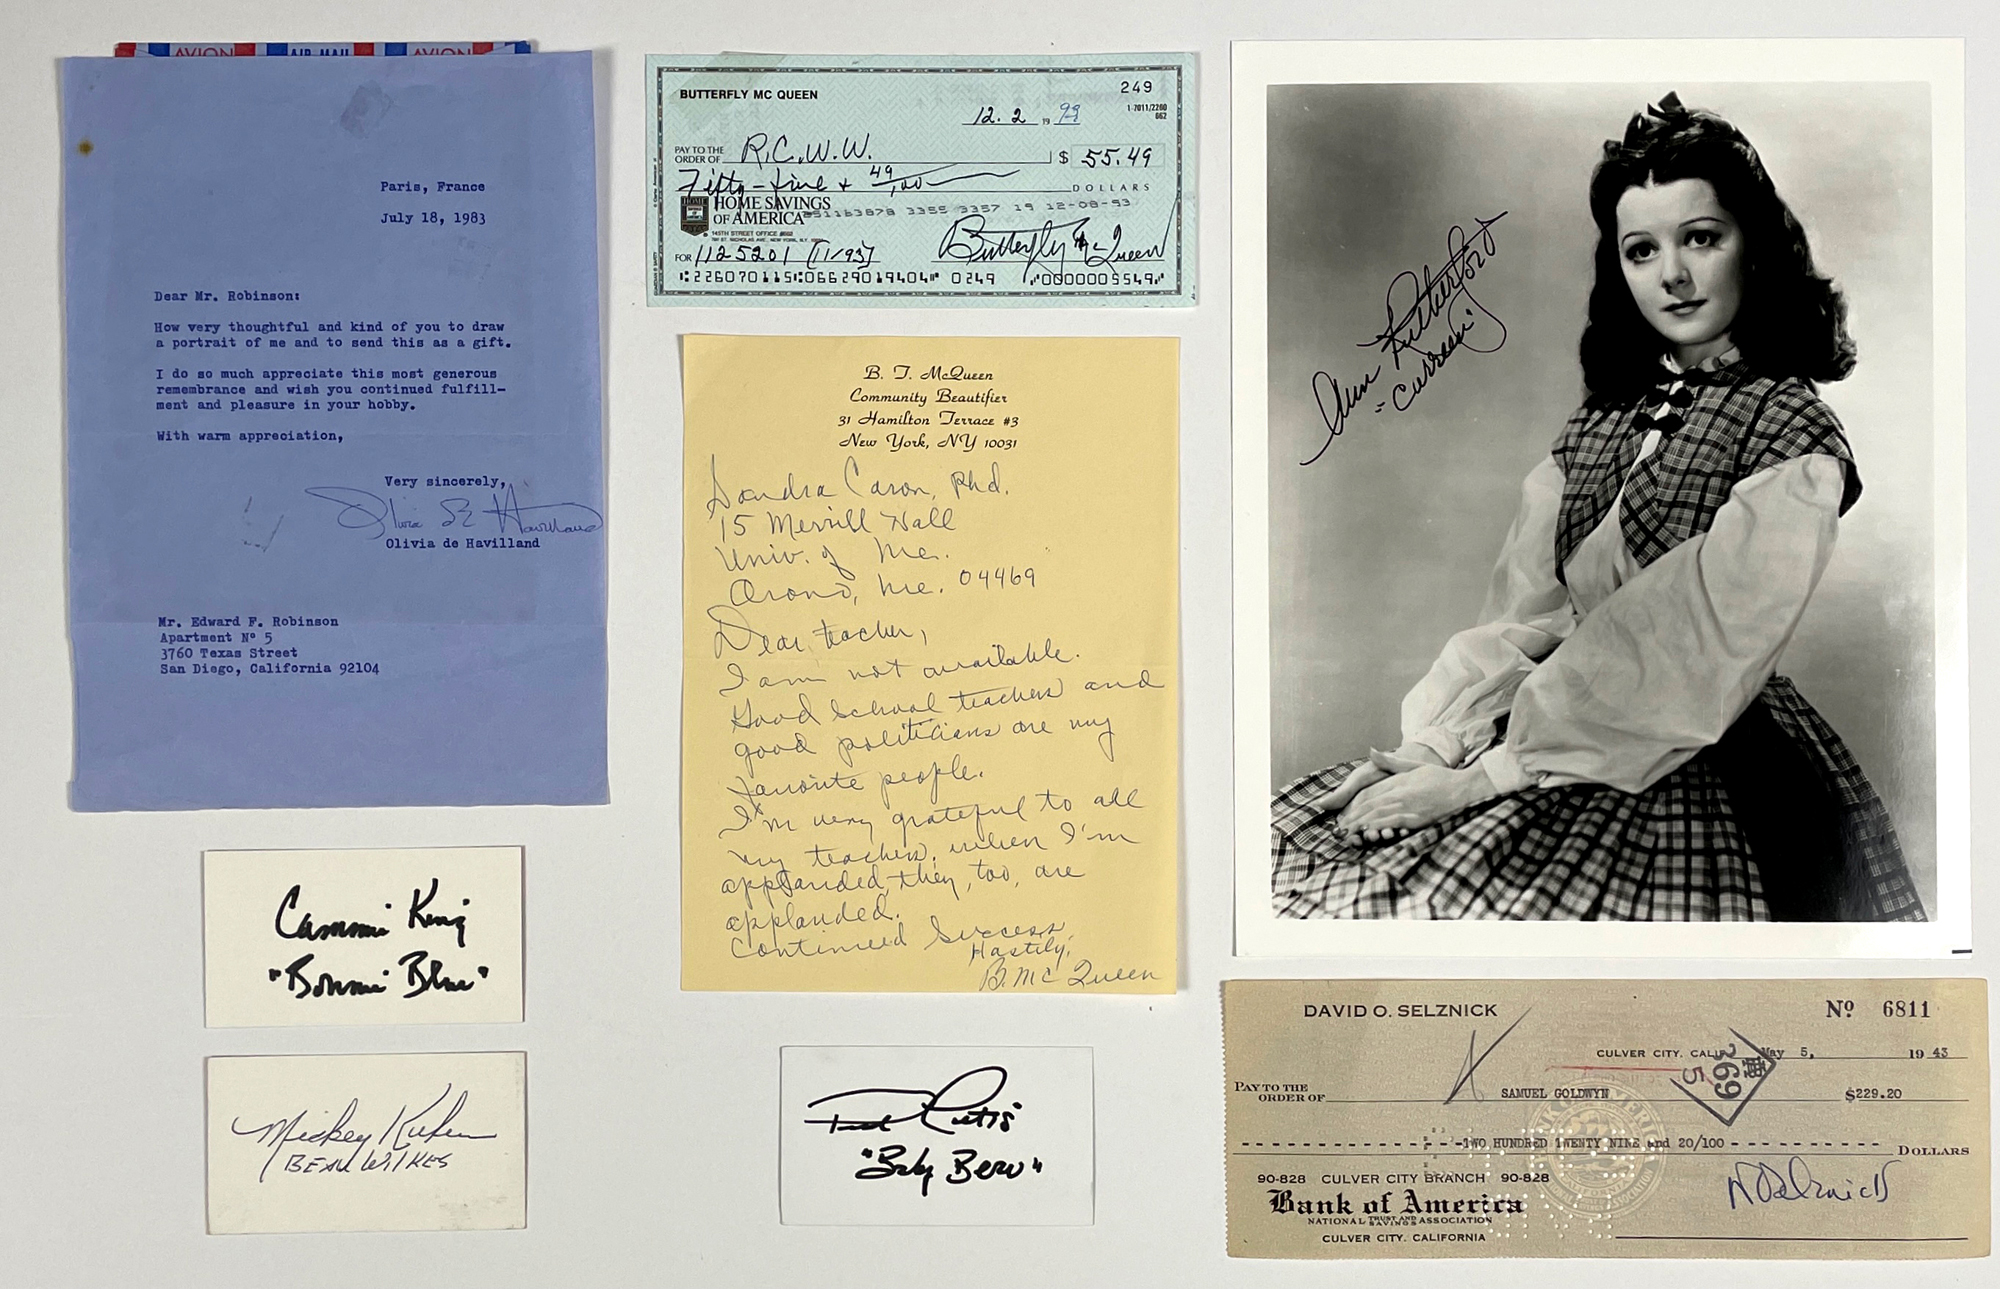 AVION AIR MAIL AVION
Paris, France
July 18, 1983
Dear Mr. Robinson:
How very thoughtful and kind of you to draw
a portrait of me and to send this as a gift.
I do so much appreciate this most generous
remembrance and wish you continued fulfill-
ment and pleasure in your hobby.
With warm appreciation,
Very sincerely,
Olivia de Havilland
Olivia de Havilland
Mr. Edward F. Robinson
Apartment Nº 5
3760 Texas Street
San Diego, California 92104
Cammie King
"Bonnie Blue"
Mickey Kuhn
BEAU WILKES
BUTTERFLY MC QUEEN
249
1-7011/2260
662
12.2 19 93
PAY TO THE
ORDER OF R.C.W.W. $ 55.49
Fifty-five + 49/100 DOLLARS
HOME SAVINGS
OF AMERICA
3355 3357 19 12-08-93
145TH STREET OFFICE #662
FOR 1125201 (11/93) Butterfly McQueen
⑆226070115⑆0662901940⑈ 0249 ⑈0000005549⑈
B. T. McQueen
Community Beautifier
31 Hamilton Terrace #3
New York, NY 10031
Sandra Caron, Phd.
15 Merrill Hall
Univ. of Me.
Orono, Me. 04469
Dear teacher,
I am not available.
Good school teachers and
good politicians are my
favorite people.
I'm very grateful to all
my teachers. when I'm
applauded, they, too, are
applauded.
Continued Success,
Hastily,
B. McQueen
"Baby Beau"
Ann Rutherford
"Carreen"
DAVID O. SELZNICK
Nº 6811
CULVER CITY, CALIF. May 5, 19 43
PAY TO THE
ORDER OF SAMUEL GOLDWYN $229.20
369
5
TWO HUNDRED TWENTY NINE and 20/100 DOLLARS
90-828 CULVER CITY BRANCH 90-828
Bank of America
NATIONAL TRUST AND SAVINGS ASSOCIATION
CULVER CITY, CALIFORNIA
DOSelznick